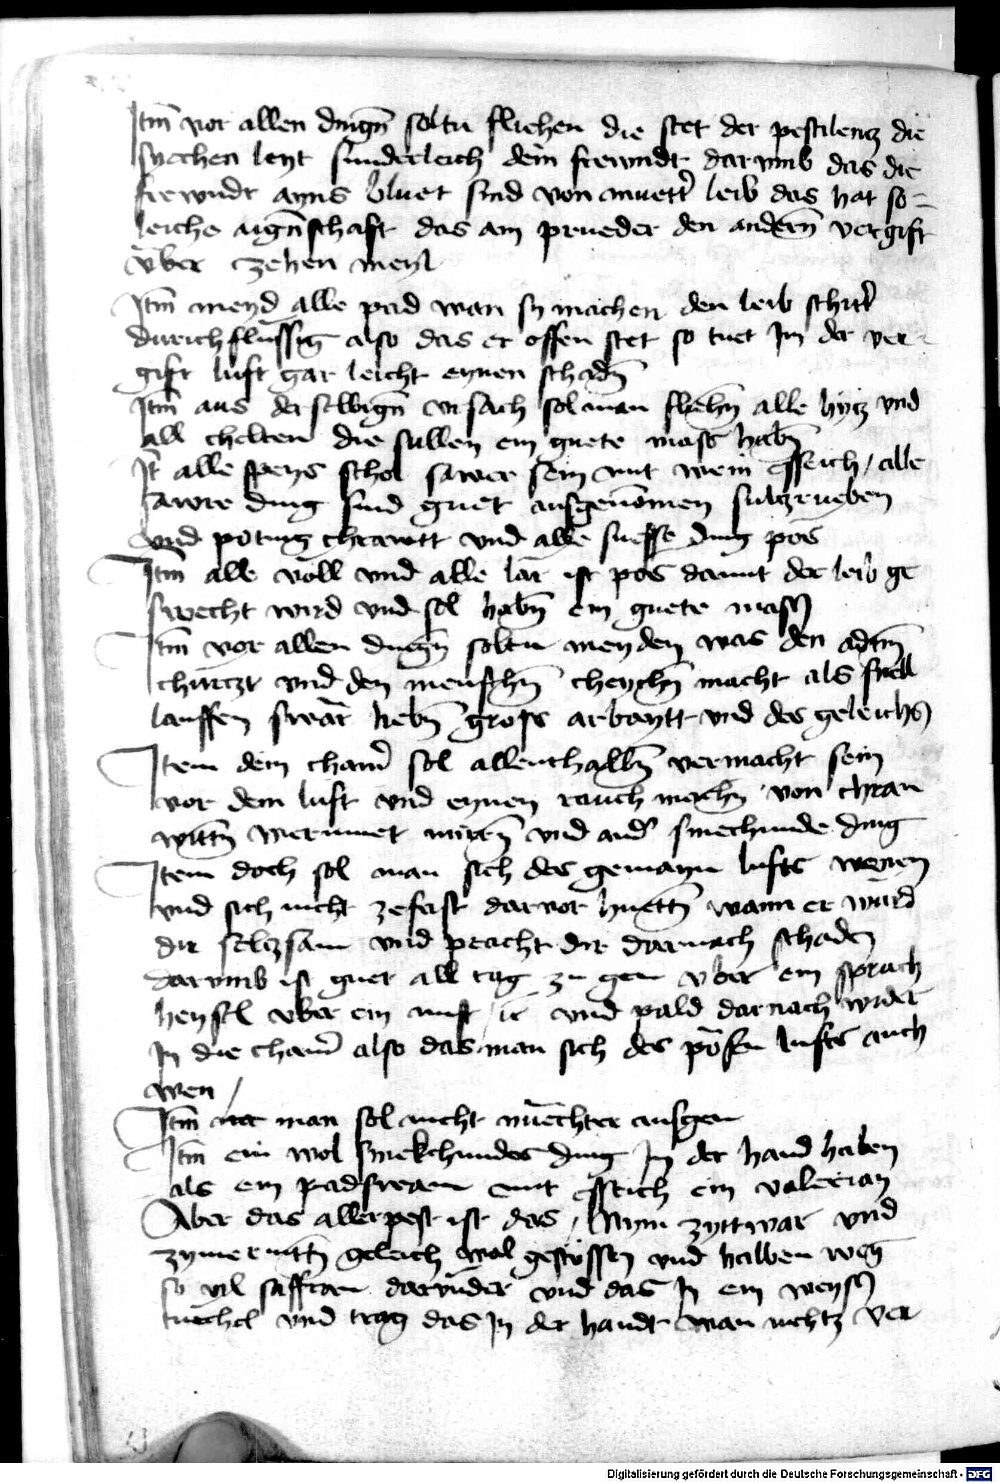 Itm vor allen dingn soltu fliehen die stet der pestilencz die
syechen leyt sunderleich dein frewndt darvmb das die
frewndt ayns bluet sind von muetter leib das hat so=
leiche aigenschaft das am prueder den andern vergift
vber czehen meyl
Itm meyd alle pad wan sy machen den leib
durichflussig also das er offen stet so tuet Im der ver=
gift luft gar leicht eynen schadn
Itm aus der selbign vrsach sol man fliehn alle hycz vnd
all chelten die sullen ein guete mass habn
It alle speys schol sawer sein mit wein essich / alle
sawre ding sind guet ausgenomen sulczrueben
vnd poting chrawtt vnd alle suesse ding pos
Itm alle voll vnd alle lar ist pos damit der leib ge
swecht wird vnd sol habn ein guete mass
Itm vor allen dingn soltu meyden was den adem
churczt vnd den menschn cheychn macht als snell
lauffen swar hebn gross arbaytt vnd des geleichs
Item dein chamer sol allenthalbn vermacht sein
vor dem luft vnd eynen rauch machn von chran
wittn wermuet mirrn vnd ander smechunde ding
Item doch sol man sich des gemayn lufts wenen
vnd sich nicht zefast darvor huettn wann er wurd
dir selczsam vnd pracht dir darnach schaden
darvmb ist guet all tag zu gen vber ein sprach
heysl vber ein mist / etc vnd pald darnach wider
In die chamer also das man sich des posen lufts auch
wen /
Itm man sol nicht nuechter ausgen
Itm ein wol smekchundes ding In der hand haben
als ein padswam mit essich ein valerian
Aber das allerpest ist das / Nym zyttwar vnd
zymerrintn geleich wol gestossen vnd halben weg
so vil saffran darunder vnd das In ein weyss
tuechel vnd trag das In der handt wan nichtz ver
Digitalisierung gefördert durch die Deutsche Forschungsgemeinschaft - DFG